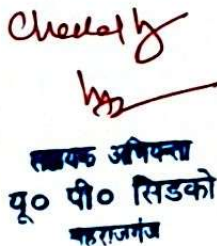 Checked by
सहायक अभियन्ता
यू० पी० सिडको
महराजगंज